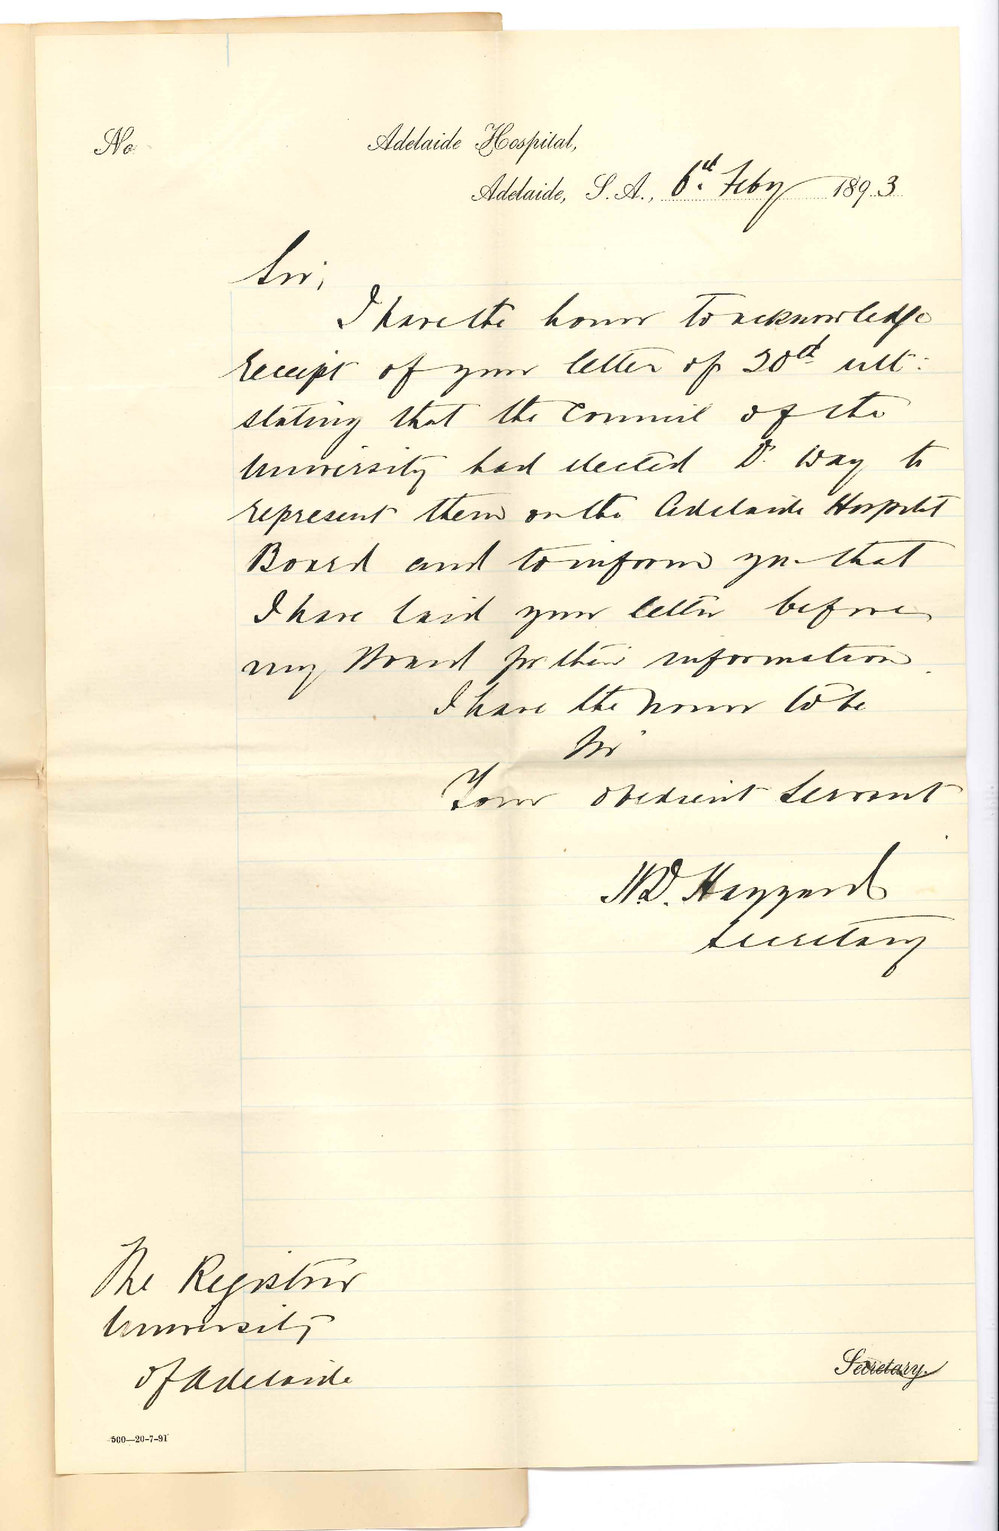 No.
Adelaide Hospital,
Adelaide, S. A., 6th Feby 1893
Sir,
I have the honor to acknowledge
receipt of your letter of 30th ult:
stating that the Council of the
University had elected Dr. Way to
represent them on the Adelaide Hospital
Board and to inform you that
I have laid your letter before
my Board for their information.
I have the honor to be
Sir
Your obedient Servant
Secretary
The Registrar
University
of Adelaide
Secretary.
500—20-7-91